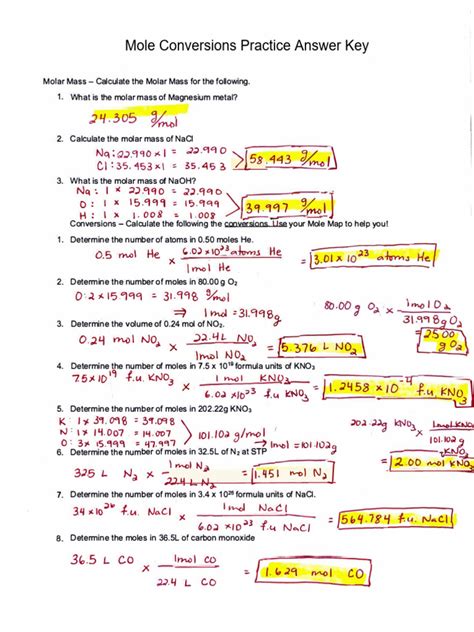 Mole Conversions Practice Answer Key
Molar Mass – Calculate the Molar Mass for the following.
1. What is the molar mass of Magnesium metal?
24.305 g/mol
2. Calculate the molar mass of NaCl
Na: 22.990 x 1 = 22.990
Cl: 35.453 x 1 = 35.453
58.443 g/mol
3. What is the molar mass of NaOH?
Na: 1 x 22.990 = 22.990
O: 1 x 15.999 = 15.999
H: 1 x 1.008 = 1.008
39.997 g/mol
Conversions – Calculate the following the conversions. Use your Mole Map to help you!
1. Determine the number of atoms in 0.50 moles He.
0.5 mol He x 6.02 x 10²³ atoms He
1mol He
= 3.01 x 10²³ atoms He
2. Determine the number of moles in 80.00g O₂
O: 2 x 15.999 = 31.998 g/mol
→ 1mol = 31.998g
80.00 g O₂ x 1mol O₂
31.998 g O₂
g O₂
3. Determine the volume of 0.24 mol of NO₂.
0.24 mol NO₂ x 22.4 L NO₂
1mol NO₂
= 5.376 L NO₂
4. Determine the number of moles in 7.5 x 10¹⁹ formula units of KNO₃
7.5 x 10¹⁹ f.u. KNO₃ x 1mol KNO₃
6.02 x 10²³ f.u. KNO₃
= 1.2458 x 10⁻⁴ f.u. KNO₃
5. Determine the number of moles in 202.22g KNO₃
K: 1 x 39.098 = 39.098
N: 1 x 14.007 = 14.007
O: 3 x 15.999 = 47.997
101.102 g/mol
→ 1mol = 101.102g
202.22g KNO₃ x 1mol KNO₃
101.102 g
KNO₃
= 2.00 mol KNO₃
6. Determine the number of moles in 32.5L of N₂ at STP
325 L N₂ x 1mol N₂
22.4 L N₂
= 1.451 mol N₂
7. Determine the number of moles in 3.4 x 10²⁶ formula units of NaCl.
34 x 10²⁶ f.u. NaCl x 1mol NaCl
6.02 x 10²³ f.u. NaCl
= 564.784 f.u. NaCl
8. Determine the moles in 36.5L of carbon monoxide
36.5 L CO x 1mol CO
22.4 L CO
= 1.629 mol CO